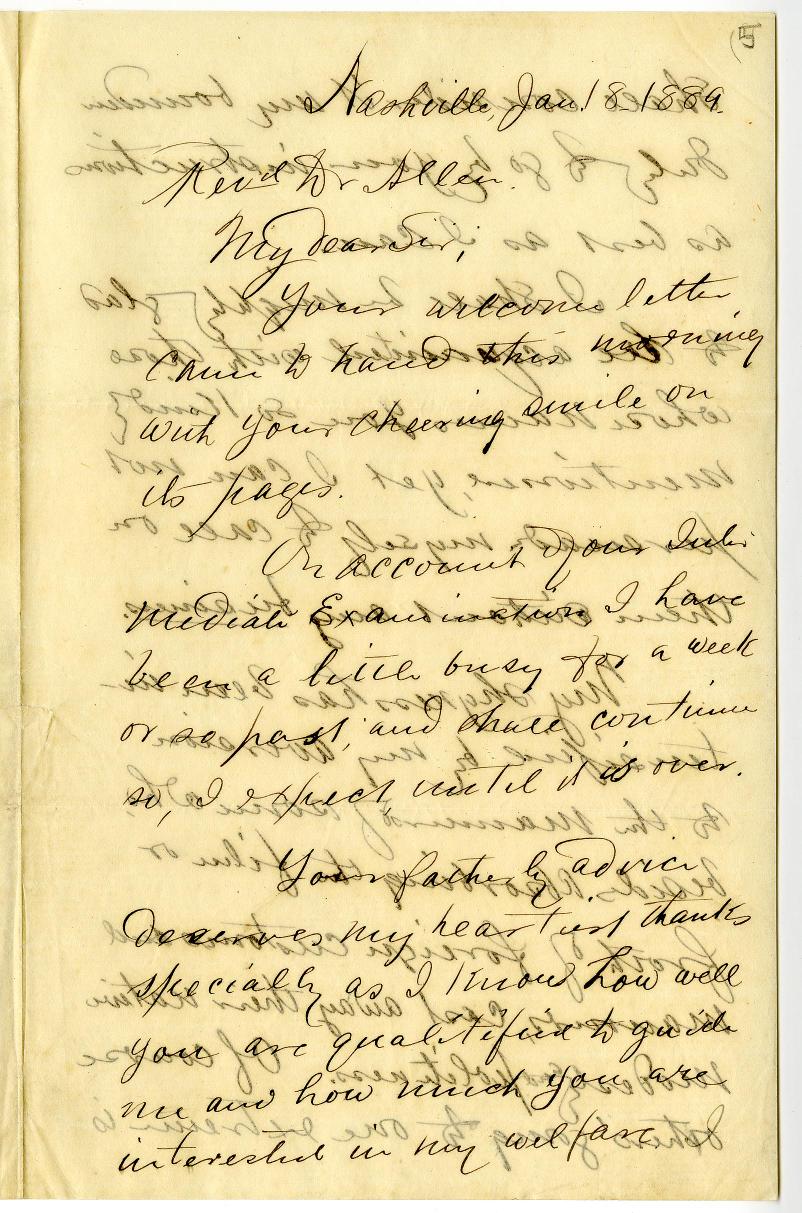 5
Nashville, Jan. 18-1889.
Rev'd Dr Allen.
My dear Sir;
Your welcome letter
came to hand this morning
with your cheering smile on
its pages.
On account of our Inter
mediate Examination I have
been a little busy for a week
or so past, and shall continue
so, I expect, until it is over.
Your fatherly advice
deserves my heartiest thanks
specially as I know how well
you are qualified to guide
me and how much you are
interested in my welfare. I